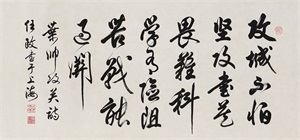 攻城不怕
坚攻书莫
畏难科
学有险阻
苦战能
过关
葉帅攻关诗
任政书于上海